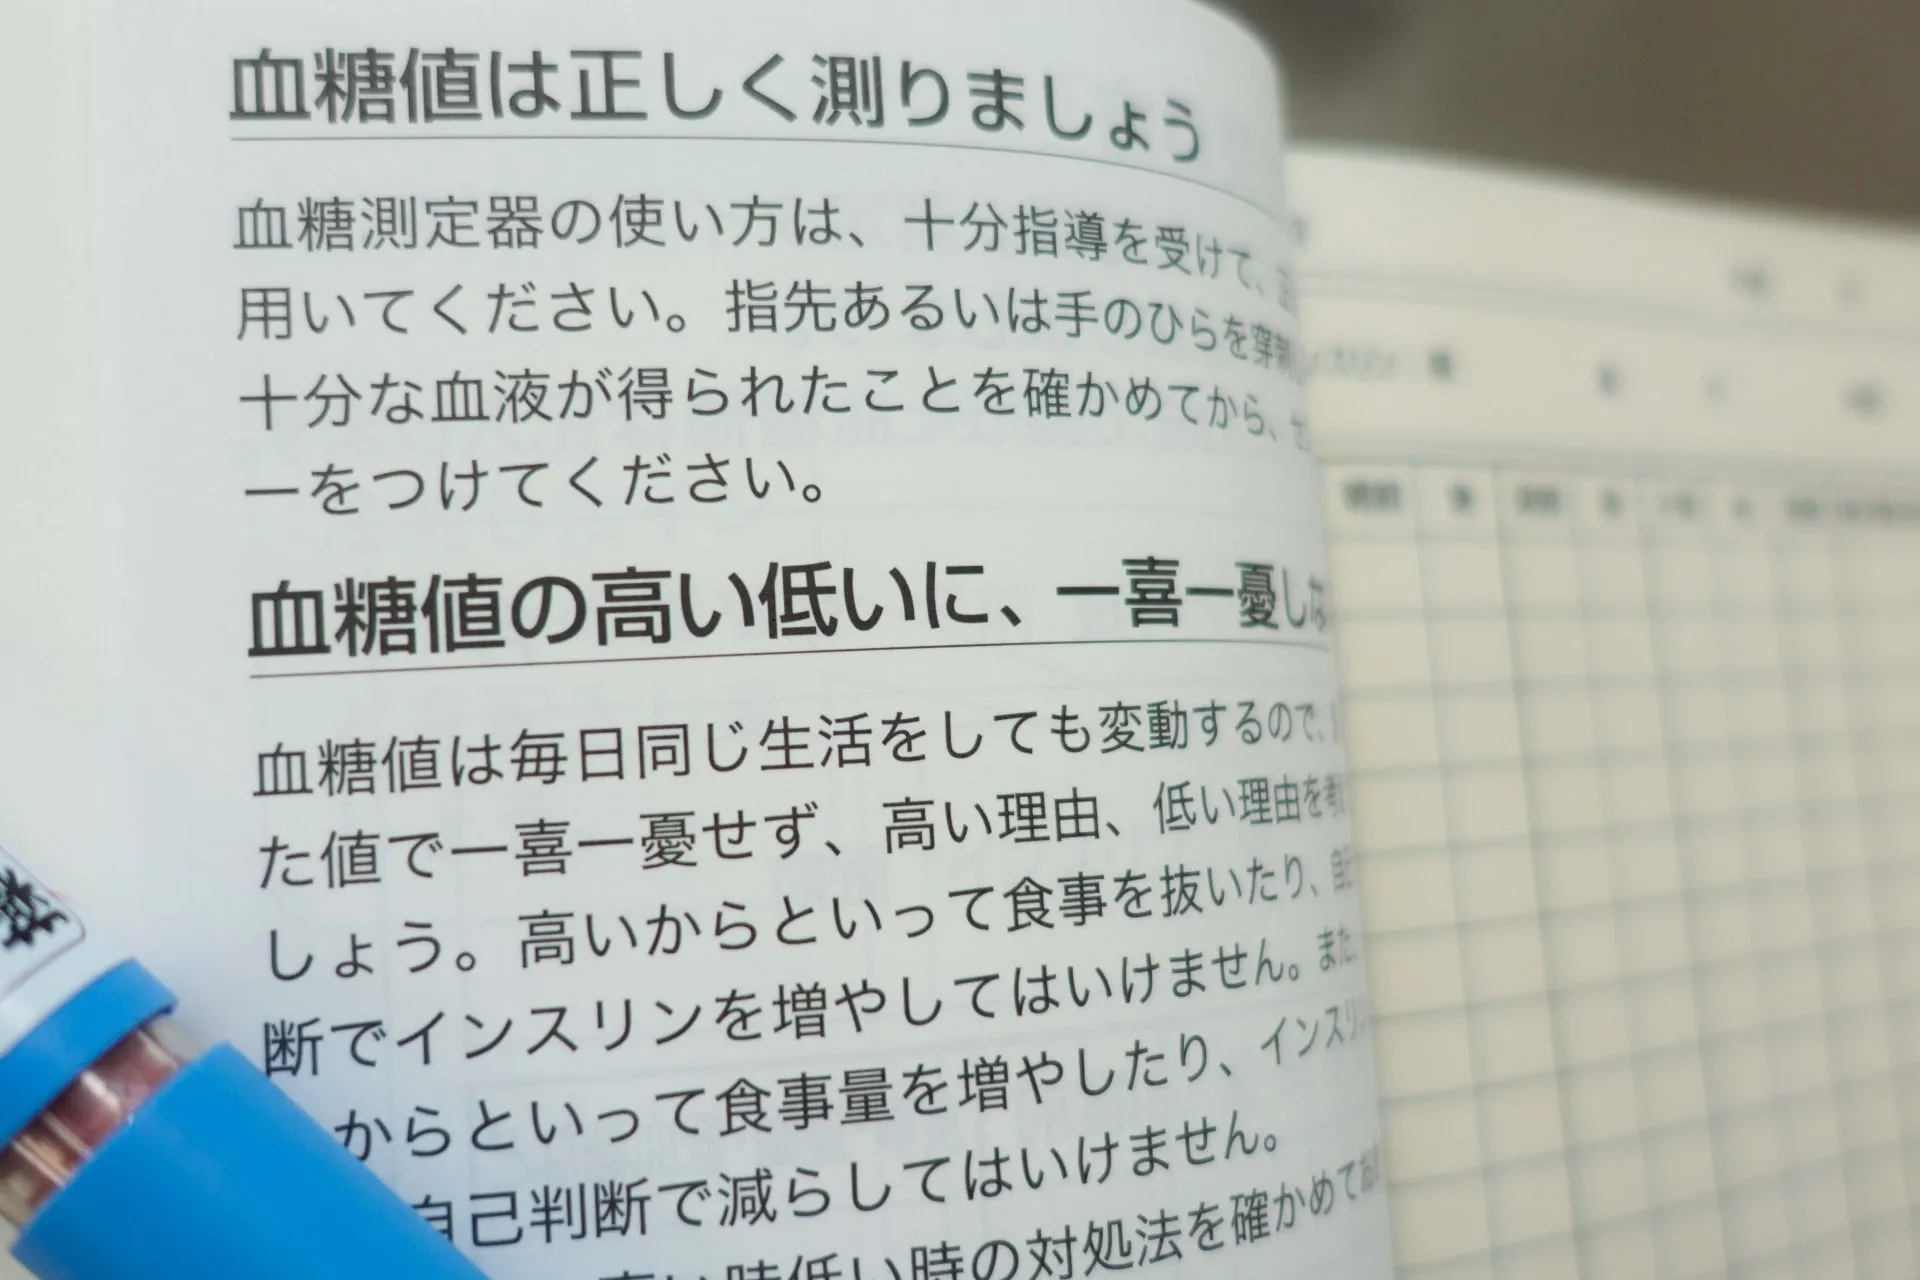 血糖値は正しく測りましょう
血糖測定器の使い方は、十分指導を受けて、正
用いてください。指先あるいは手のひらを穿刺し
十分な血液が得られたことを確かめてから、セ
ーをつけてください。
血糖値の高い低いに、一喜一憂しな
血糖値は毎日同じ生活をしても変動するので、
た値で一喜一憂せず、高い理由、低い理由を考
しょう。高いからといって食事を抜いたり、自己
断でインスリンを増やしてはいけません。また、
からといって食事量を増やしたり、インスリ
自己判断で減らしてはいけません。
高い時低い時の対処法を確かめてお
糖